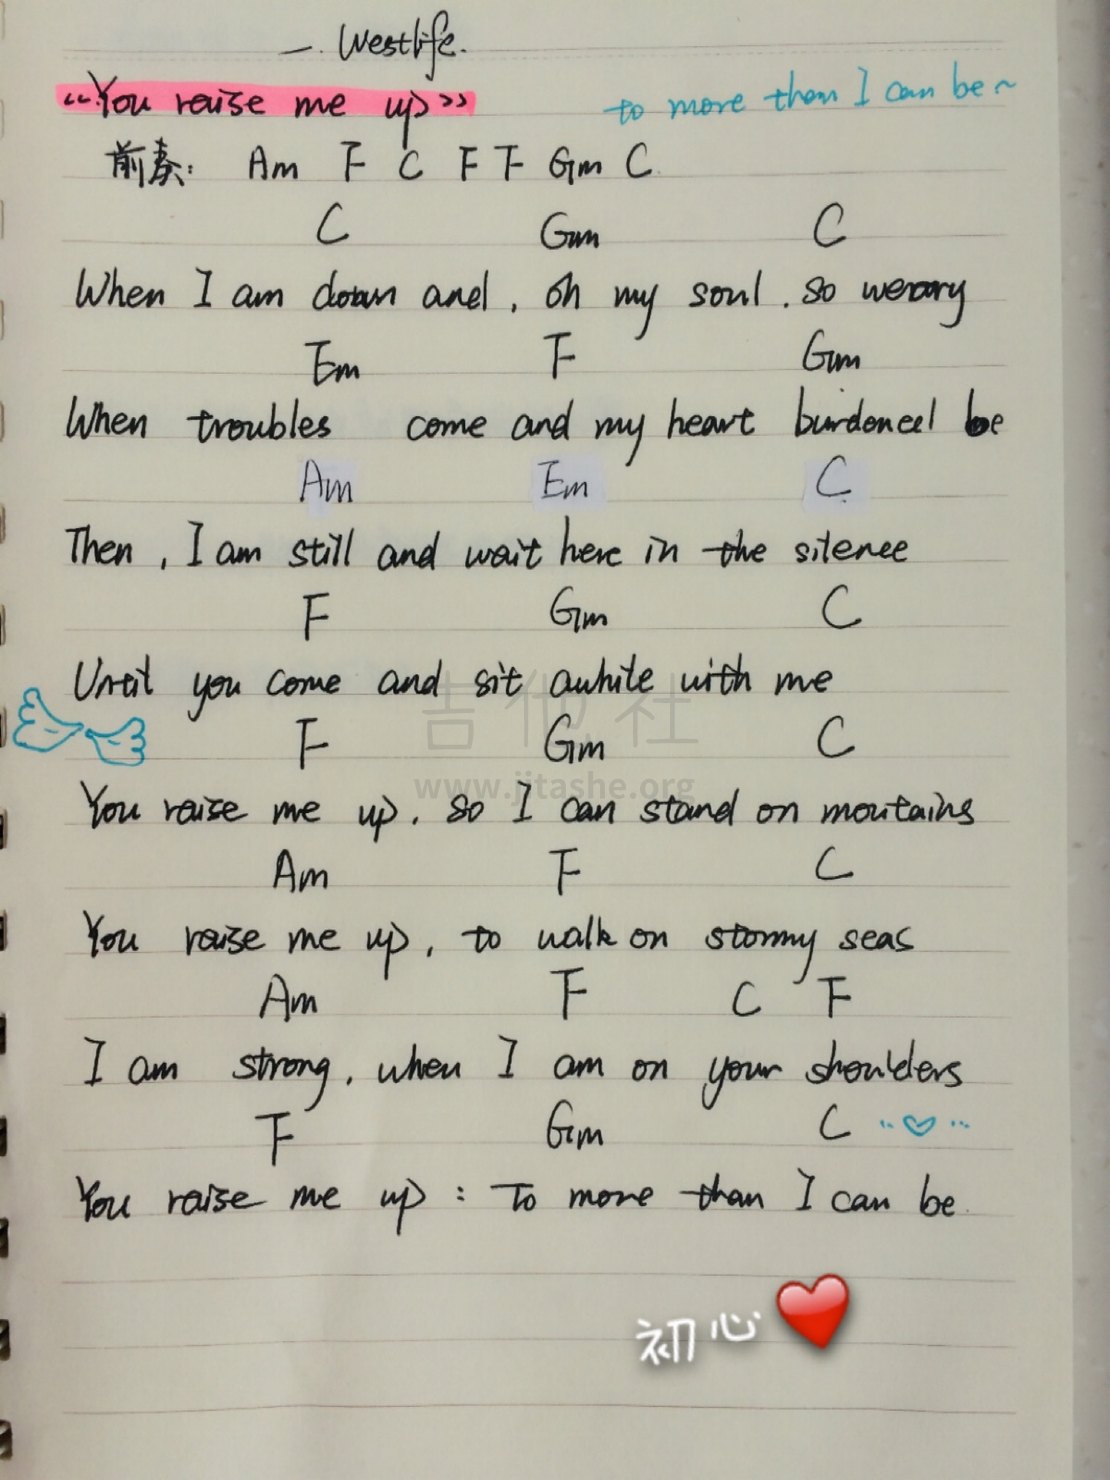 — Westlife.
《You raise me up》 to more than I can be ~
前奏: Am F C F F Gm C
C Gm C
When I am down and, oh my soul. so weary
Em F Gm
When troubles come and my heart burdened be
Am Em C
Then, I am still and wait here in the silence
F Gm C
Until you come and sit awhile with me
吉他社
F Gm C
www.jitashe.org
You raise me up, so I can stand on moutains
Am F C
You raise me up, to walk on stormy seas
Am F C F
I am strong, when I am on your shoulders
F Gm C
You raise me up: To more than I can be.
初心